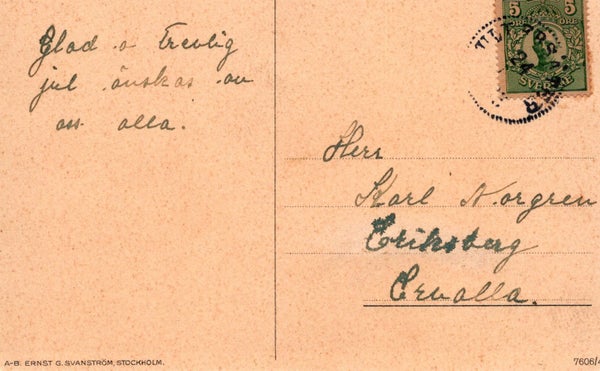 Glad o Trevlig
jul önskas av
oss alla.
5 5
ÖRE
SVERIGE
Herr
Karl Norgren
Eriksberg
Ervalla.
A-B. ERNST G. SVANSTRÖM, STOCKHOLM.
7606/4